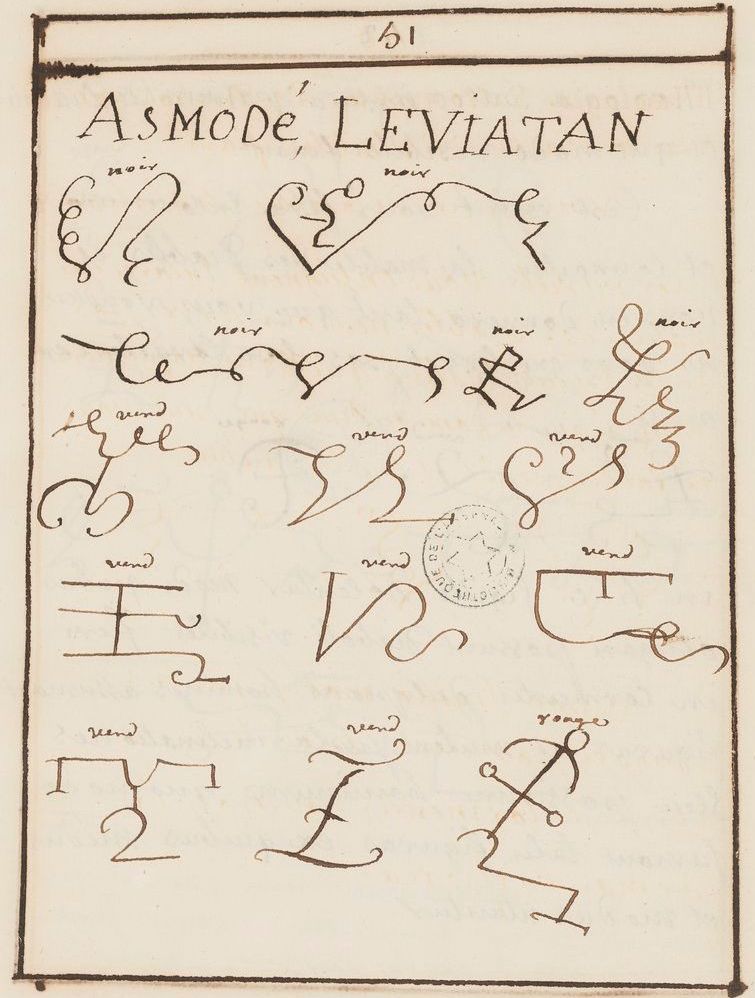 51
ASMODé, LEVIATAN
noir noir
noir noir noir
verd verd verd
verd verd verd
verd verd rouge